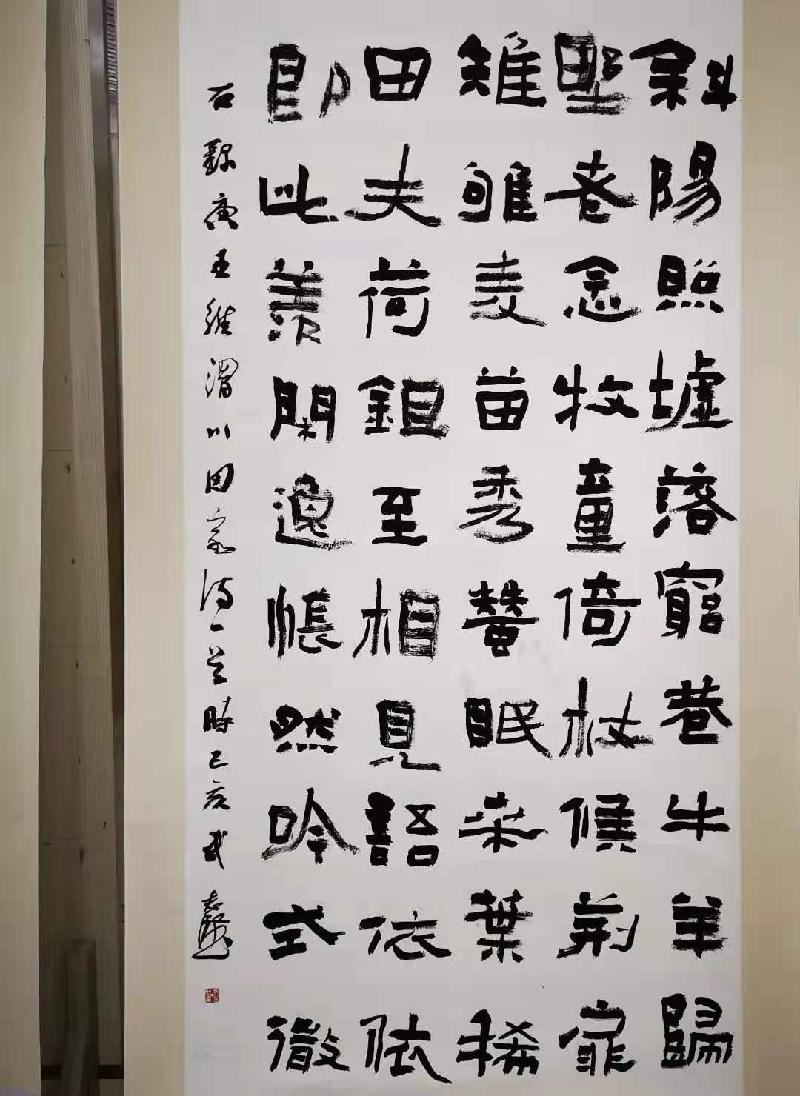 斜陽照墟落窮巷牛羊歸
野老念牧童倚杖候荊扉
雉雊麦苗秀蠶眠桑葉稀
田夫荷鉏至相見語依依
即此羨閑逸悵然吟式微
右録唐王維渭川田家詩一首時己亥武